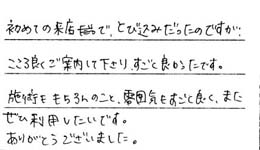 初めての来店で、とび込みだったのですが、
こころ良くご案内して下さり、すごく良かったです。
施術もももちろんのこと、雰囲気もすごく良く、また
ぜひ利用したいです。
ありがとうございました。